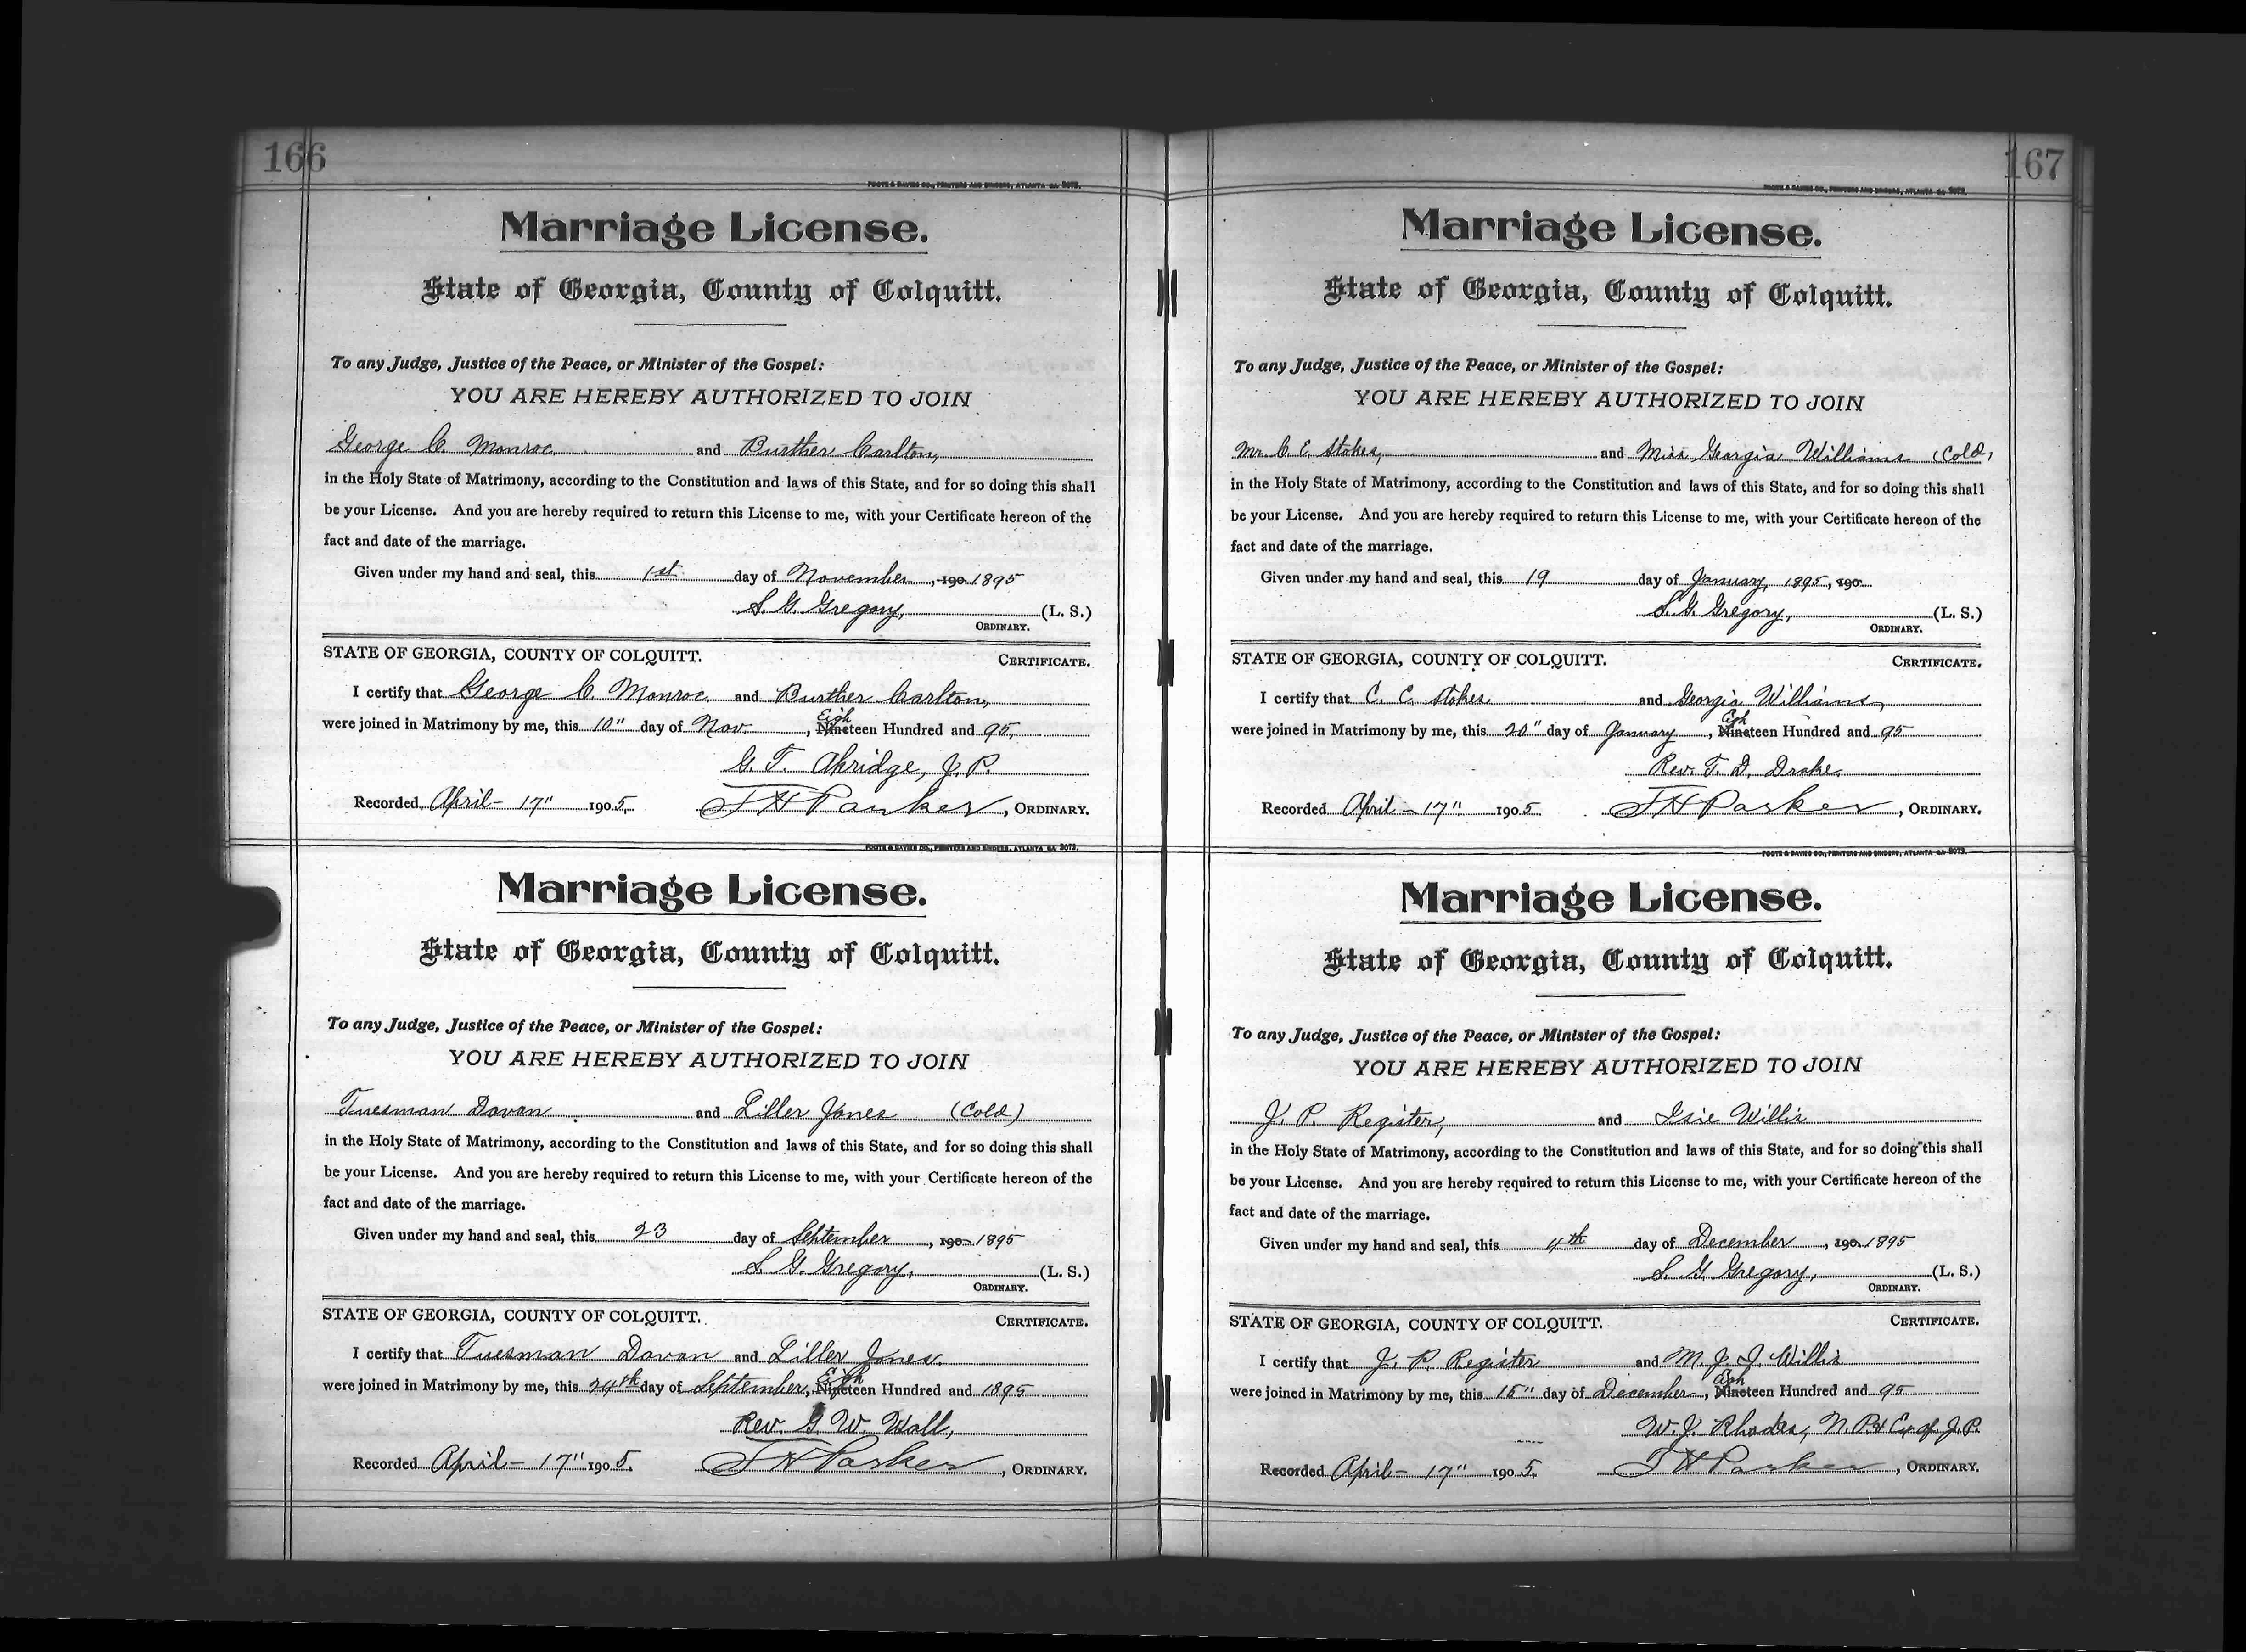 166
FOOTE & DAVIES CO., PRINTERS AND BINDERS, ATLANTA GA 3073.
Marriage License.
State of Georgia, County of Colquitt.
To any Judge, Justice of the Peace, or Minister of the Gospel:
YOU ARE HEREBY AUTHORIZED TO JOIN
George C. Monroe and Burther Carlton,
in the Holy State of Matrimony, according to the Constitution and laws of this State, and for so doing this shall
be your License. And you are hereby required to return this License to me, with your Certificate hereon of the
fact and date of the marriage.
Given under my hand and seal, this 1st day of November, 190 1895
S. G. Gregory, (L. S.)
ORDINARY.
STATE OF GEORGIA, COUNTY OF COLQUITT. CERTIFICATE.
I certify that George C. Monroe and Burther Carlton,
Eigh
were joined in Matrimony by me, this 10" day of Nov. , Nineteen Hundred and 95,
G. F. Akridge, J. P.
Recorded April - 17" 1905. T H Parker, ORDINARY.
FOOTE & DAVIES CO., PRINTERS AND BINDERS, ATLANTA GA 3073.
Marriage License.
State of Georgia, County of Colquitt.
To any Judge, Justice of the Peace, or Minister of the Gospel:
YOU ARE HEREBY AUTHORIZED TO JOIN
Tuesman Davan and Liller Jones (Cold)
in the Holy State of Matrimony, according to the Constitution and laws of this State, and for so doing this shall
be your License. And you are hereby required to return this License to me, with your Certificate hereon of the
fact and date of the marriage.
Given under my hand and seal, this 23 day of September, 190 1895
S. G. Gregory, (L. S.)
ORDINARY.
STATE OF GEORGIA, COUNTY OF COLQUITT. CERTIFICATE.
I certify that Tuesman Davan and Liller Jones.
Eigh
were joined in Matrimony by me, this 24th day of September, Nineteen Hundred and 1895
Rev. G. W. Wall,
Recorded April - 17" 1905. T H Parker, ORDINARY.
167
FOOTE & DAVIES CO., PRINTERS AND BINDERS, ATLANTA GA 3073.
Marriage License.
State of Georgia, County of Colquitt.
To any Judge, Justice of the Peace, or Minister of the Gospel:
YOU ARE HEREBY AUTHORIZED TO JOIN
Mr. C. E. Stokes, and Miss Georgia Williams (Cold)
in the Holy State of Matrimony, according to the Constitution and laws of this State, and for so doing this shall
be your License. And you are hereby required to return this License to me, with your Certificate hereon of the
fact and date of the marriage.
Given under my hand and seal, this 19 day of January, 1895, 190
S. G. Gregory, (L. S.)
ORDINARY.
STATE OF GEORGIA, COUNTY OF COLQUITT. CERTIFICATE.
I certify that C. E. Stokes and Georgia Williams,
Eigh
were joined in Matrimony by me, this 20" day of January, Nineteen Hundred and 95
Rev. T. D. Drake.
Recorded April - 17" 1905 T H Parker, ORDINARY.
FOOTE & DAVIES CO., PRINTERS AND BINDERS, ATLANTA GA 3073.
Marriage License.
State of Georgia, County of Colquitt.
To any Judge, Justice of the Peace, or Minister of the Gospel:
YOU ARE HEREBY AUTHORIZED TO JOIN
J. P. Register, and Isie Willis
in the Holy State of Matrimony, according to the Constitution and laws of this State, and for so doing this shall
be your License. And you are hereby required to return this License to me, with your Certificate hereon of the
fact and date of the marriage.
Given under my hand and seal, this 4th day of December, 190 1895
S. G. Gregory, (L. S.)
ORDINARY.
STATE OF GEORGIA, COUNTY OF COLQUITT. CERTIFICATE.
I certify that J. P. Register and M. J. I. Willis
Eigh
were joined in Matrimony by me, this 15" day of December, Nineteen Hundred and 95
W. J. Rhodes, N. P. & Ex of J. P.
Recorded April - 17" 1905. T H Parker, ORDINARY.